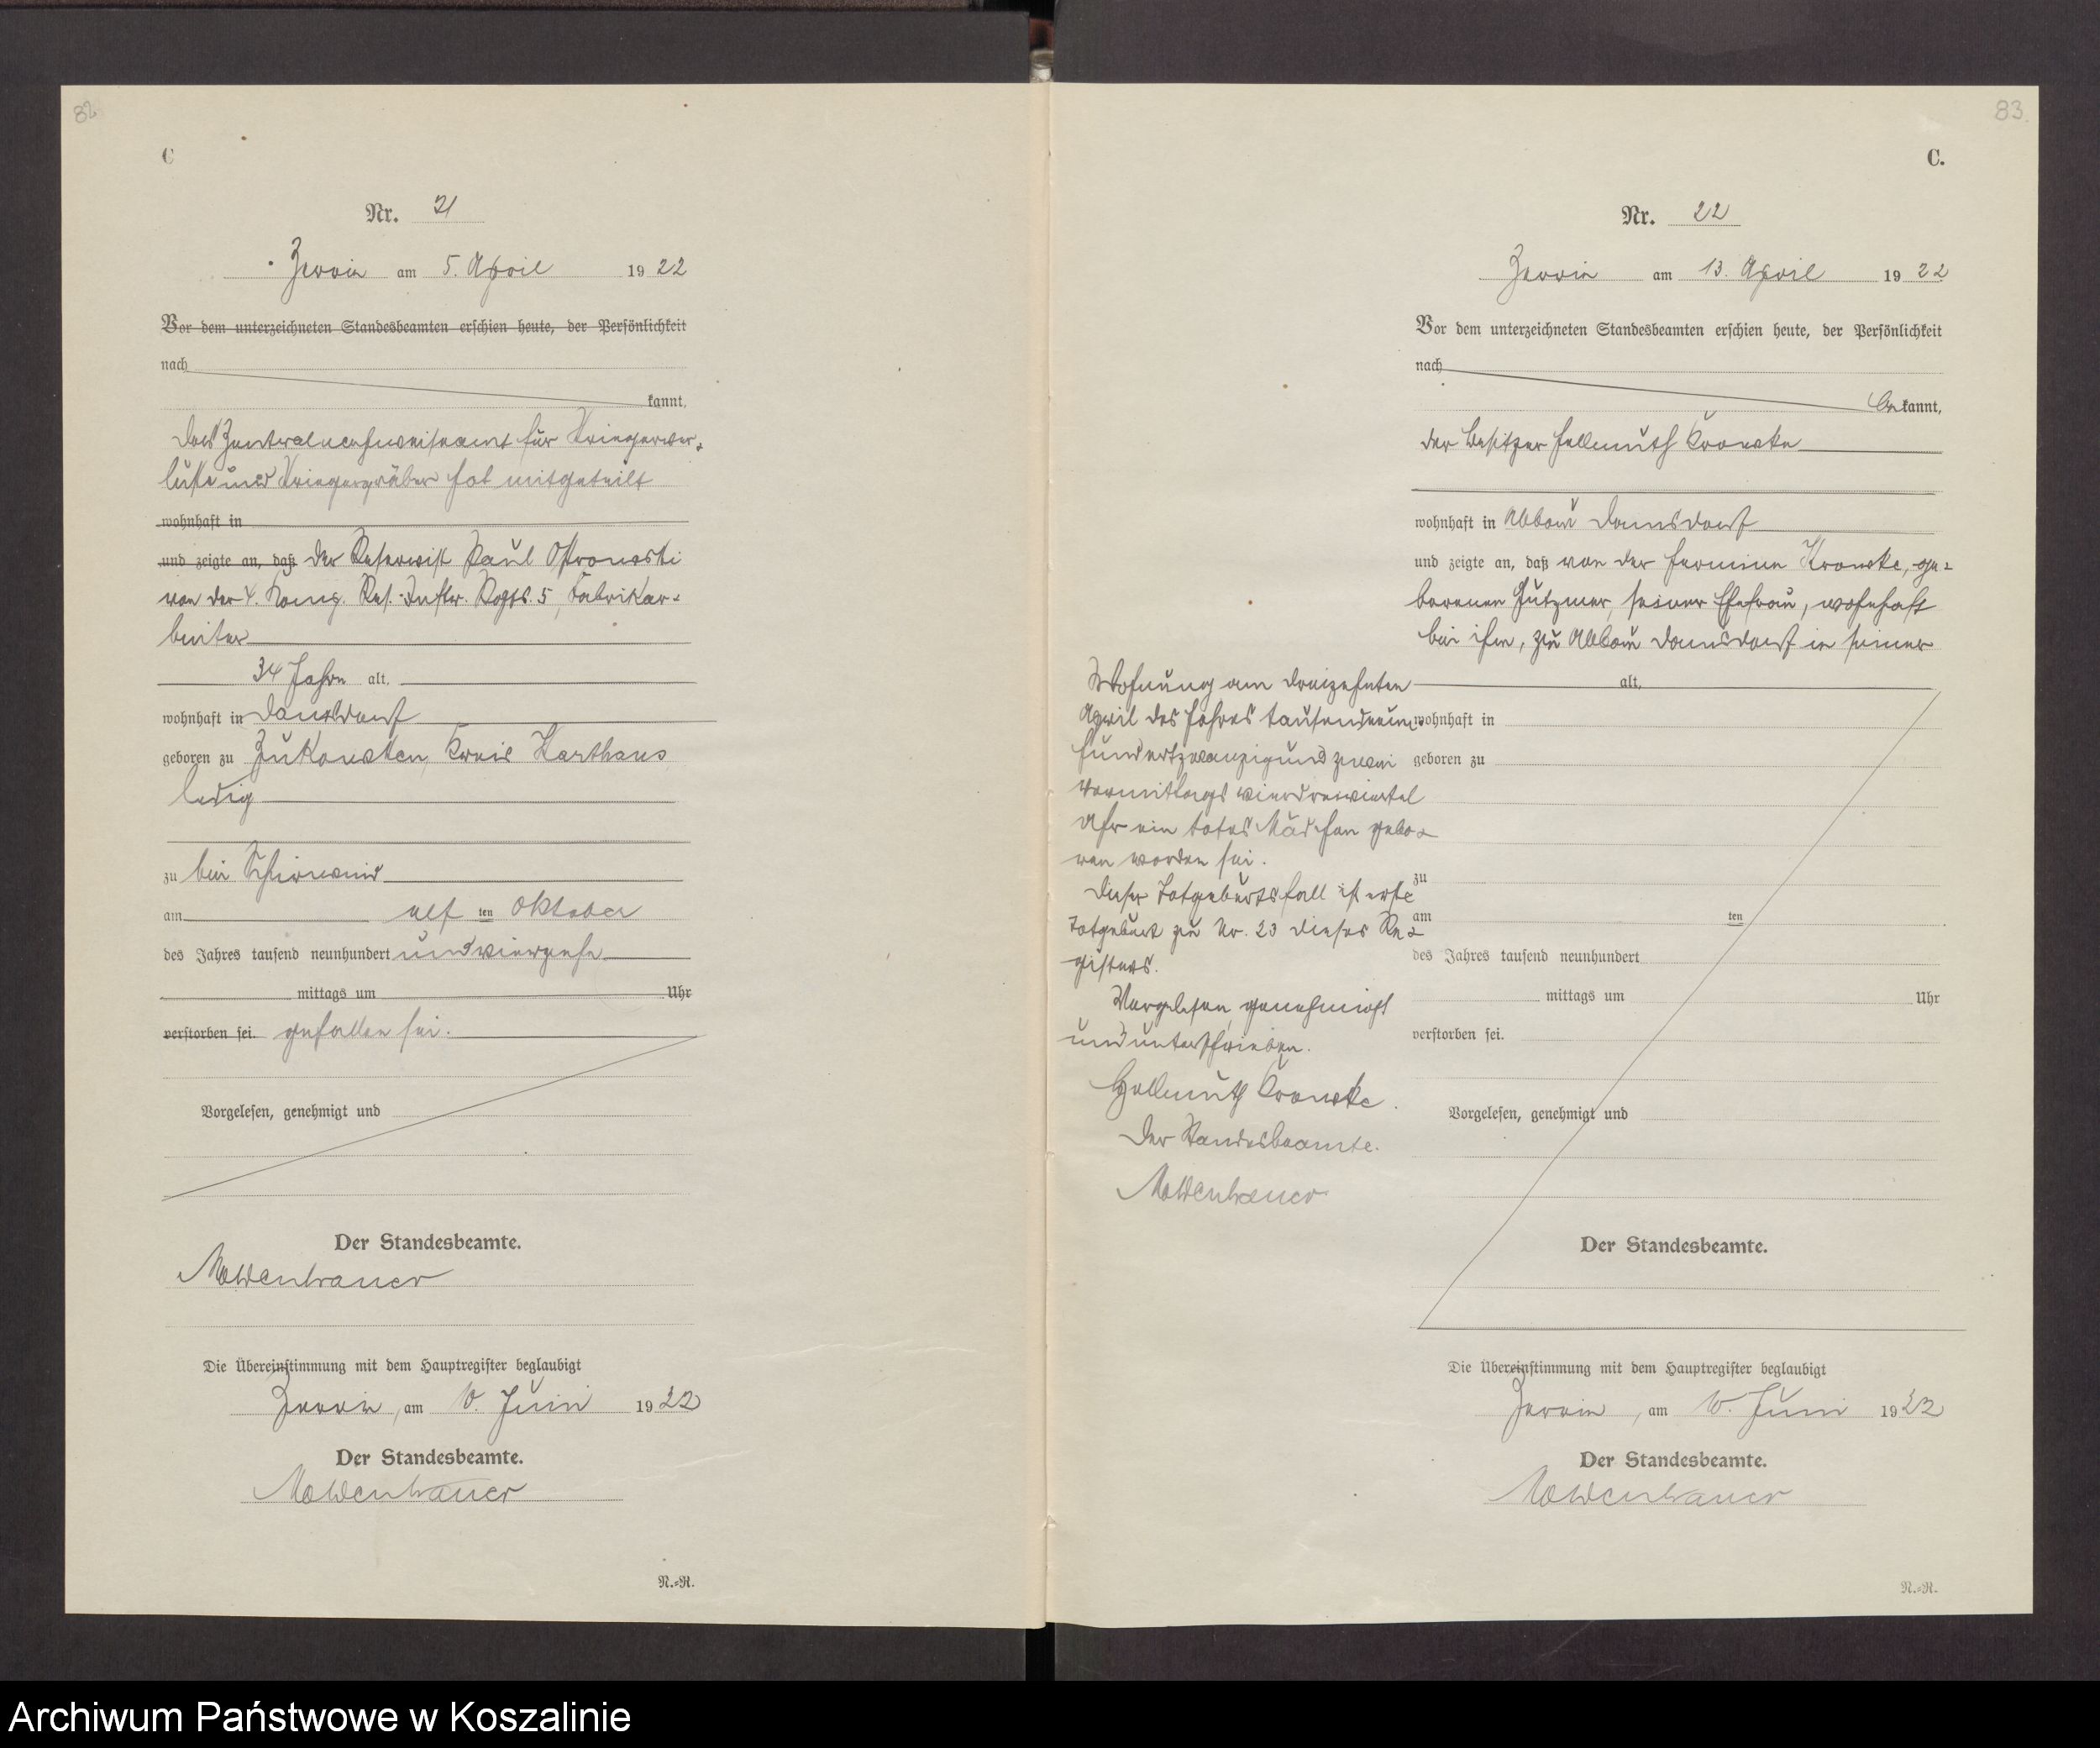 82
C
Nr. 21
Zerrin am 5. April 1922
Vor dem unterzeichneten Standesbeamten erschien heute, der Persönlichkeit
nach
kannt,
Das Zentralnachweiseamt für Kriegerver-
luste und Kriegergräber hat mitgeteilt
wohnhaft in
und zeigte an, daß der Reservist Paul Ostrowski
von der 4. Komp. Res. Inftr. Regts. 5, Fabrikar-
beiter
34 Jahre alt,
wohnhaft in Damsdorf
geboren zu Zukowken, Kreis Karthaus
ledig
zu bei Schirwind
am elf ten Oktober
des Jahres tausend neunhundert und vierzehn
mittags um Uhr
verstorben sei. gefallen sei.
Vorgelesen, genehmigt und
Der Standesbeamte.
Moldenhauer
Die Übereinstimmung mit dem Hauptregister beglaubigt
Zerrin, am 10. Juni 1922
Der Standesbeamte.
Moldenhauer
N.=R.
83.
C.
Nr. 22
Zerrin am 13. April 1922
Vor dem unterzeichneten Standesbeamten erschien heute, der Persönlichkeit
nach
be kannt,
der Besitzer Hellmuth
wohnhaft in Abbau Damsdorf
und zeigte an, daß von der Hermine, ge-
borenen Gutzmer, seiner Ehefrau, wohnhaft
bei ihm, zu Abbau Damsdorf in seiner
alt,
wohnhaft in
geboren zu
zu
am ten
des Jahres tausend neunhundert
mittags um Uhr
verstorben sei.
Vorgelesen, genehmigt und
Wohnung am dreizehnten
April des Jahres tausendneun-
hundertzwanzigundzwei
vormittags vierdreiviertel
Uhr ein totes Mädchen gebo-
ren worden sei.
Dieser Totgeburtsfall ist erste
Totgeburt zu Nr. 23 dieses Re-
gisters.
Vorgelesen, genehmigt
und unterschrieben.
Hellmuth
Der Standesbeamte.
Moldenhauer
Der Standesbeamte.
Die Übereinstimmung mit dem Hauptregister beglaubigt
Zerrin, am 10. Juni 1922
Der Standesbeamte.
Moldenhauer
N.=R.
Archiwum Państwowe w Koszalinie